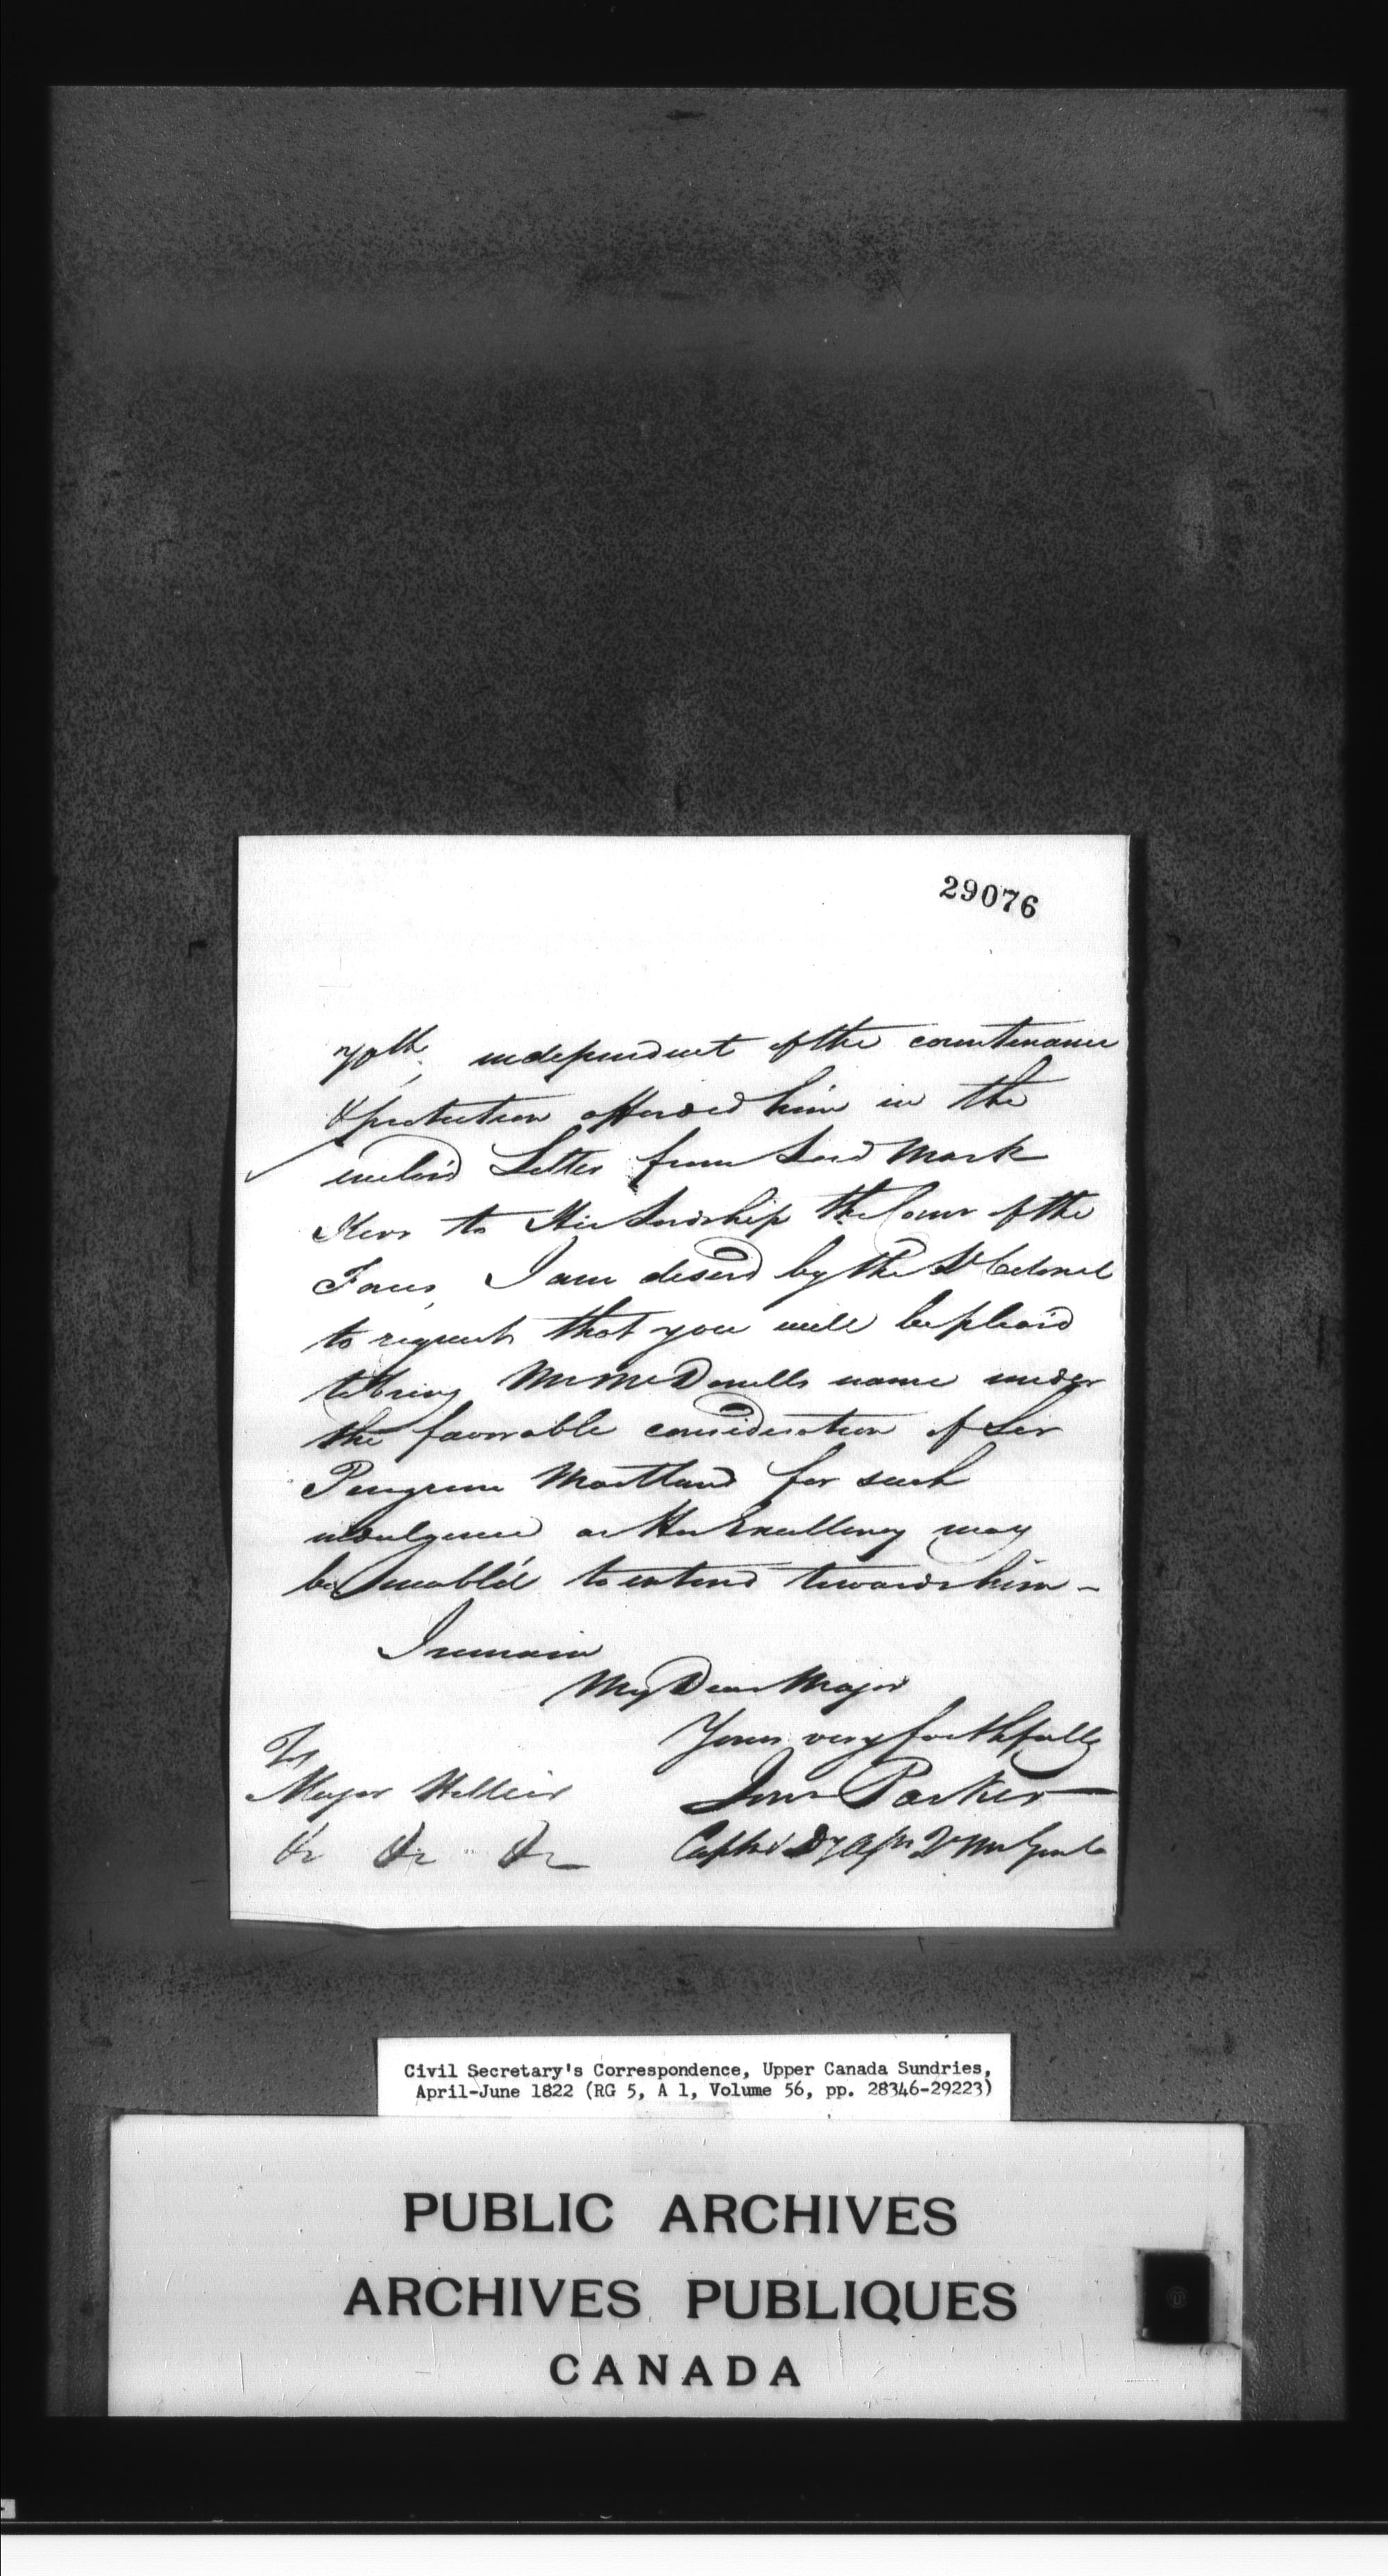 29076
70th, independent of the countenance
& protection afforded him in the
enclos'd Letter from Lord Mark
Kerr to His Lordship the Comr of the
Forces, I am desired by the Lt Colonel
to request that you will be pleas'd
to bring Mr McDonells name under
the favorable consideration of Sir
Peregrine Maitland for such
indulgence as His Excellency may
be enabl'd to extend towards him –
I remain
My Dear Major
Yours very faithfully
Parker
To
Major Hillier
&c &c &c
Captn Dy Asst Qr Mr Genl
Civil Secretary's Correspondence, Upper Canada Sundries,
April-June 1822 (RG 5, A 1, Volume 56, pp. 28346-29223)
PUBLIC ARCHIVES
ARCHIVES PUBLIQUES
CANADA